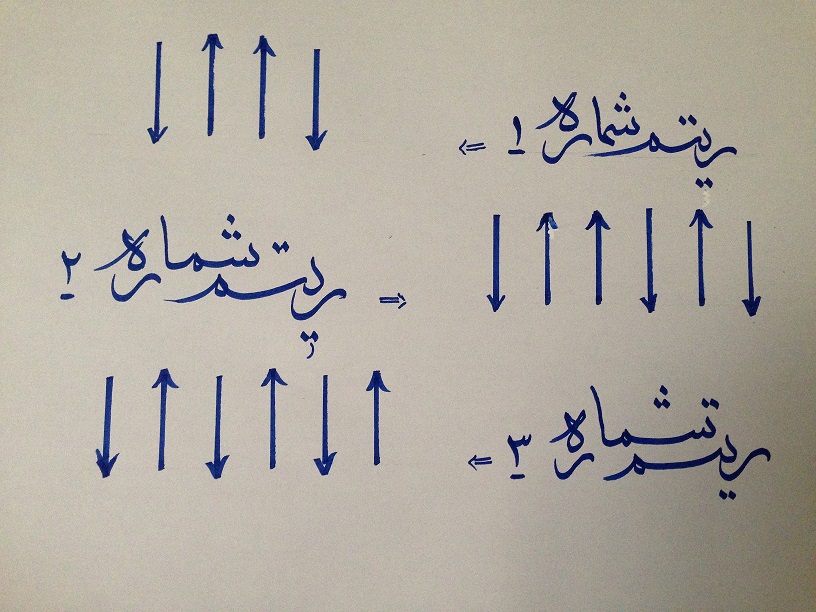 ریتم شماره ۱ ⇐
ریتم شماره ۲ ⇒
ریتم شماره ۳ ⇐